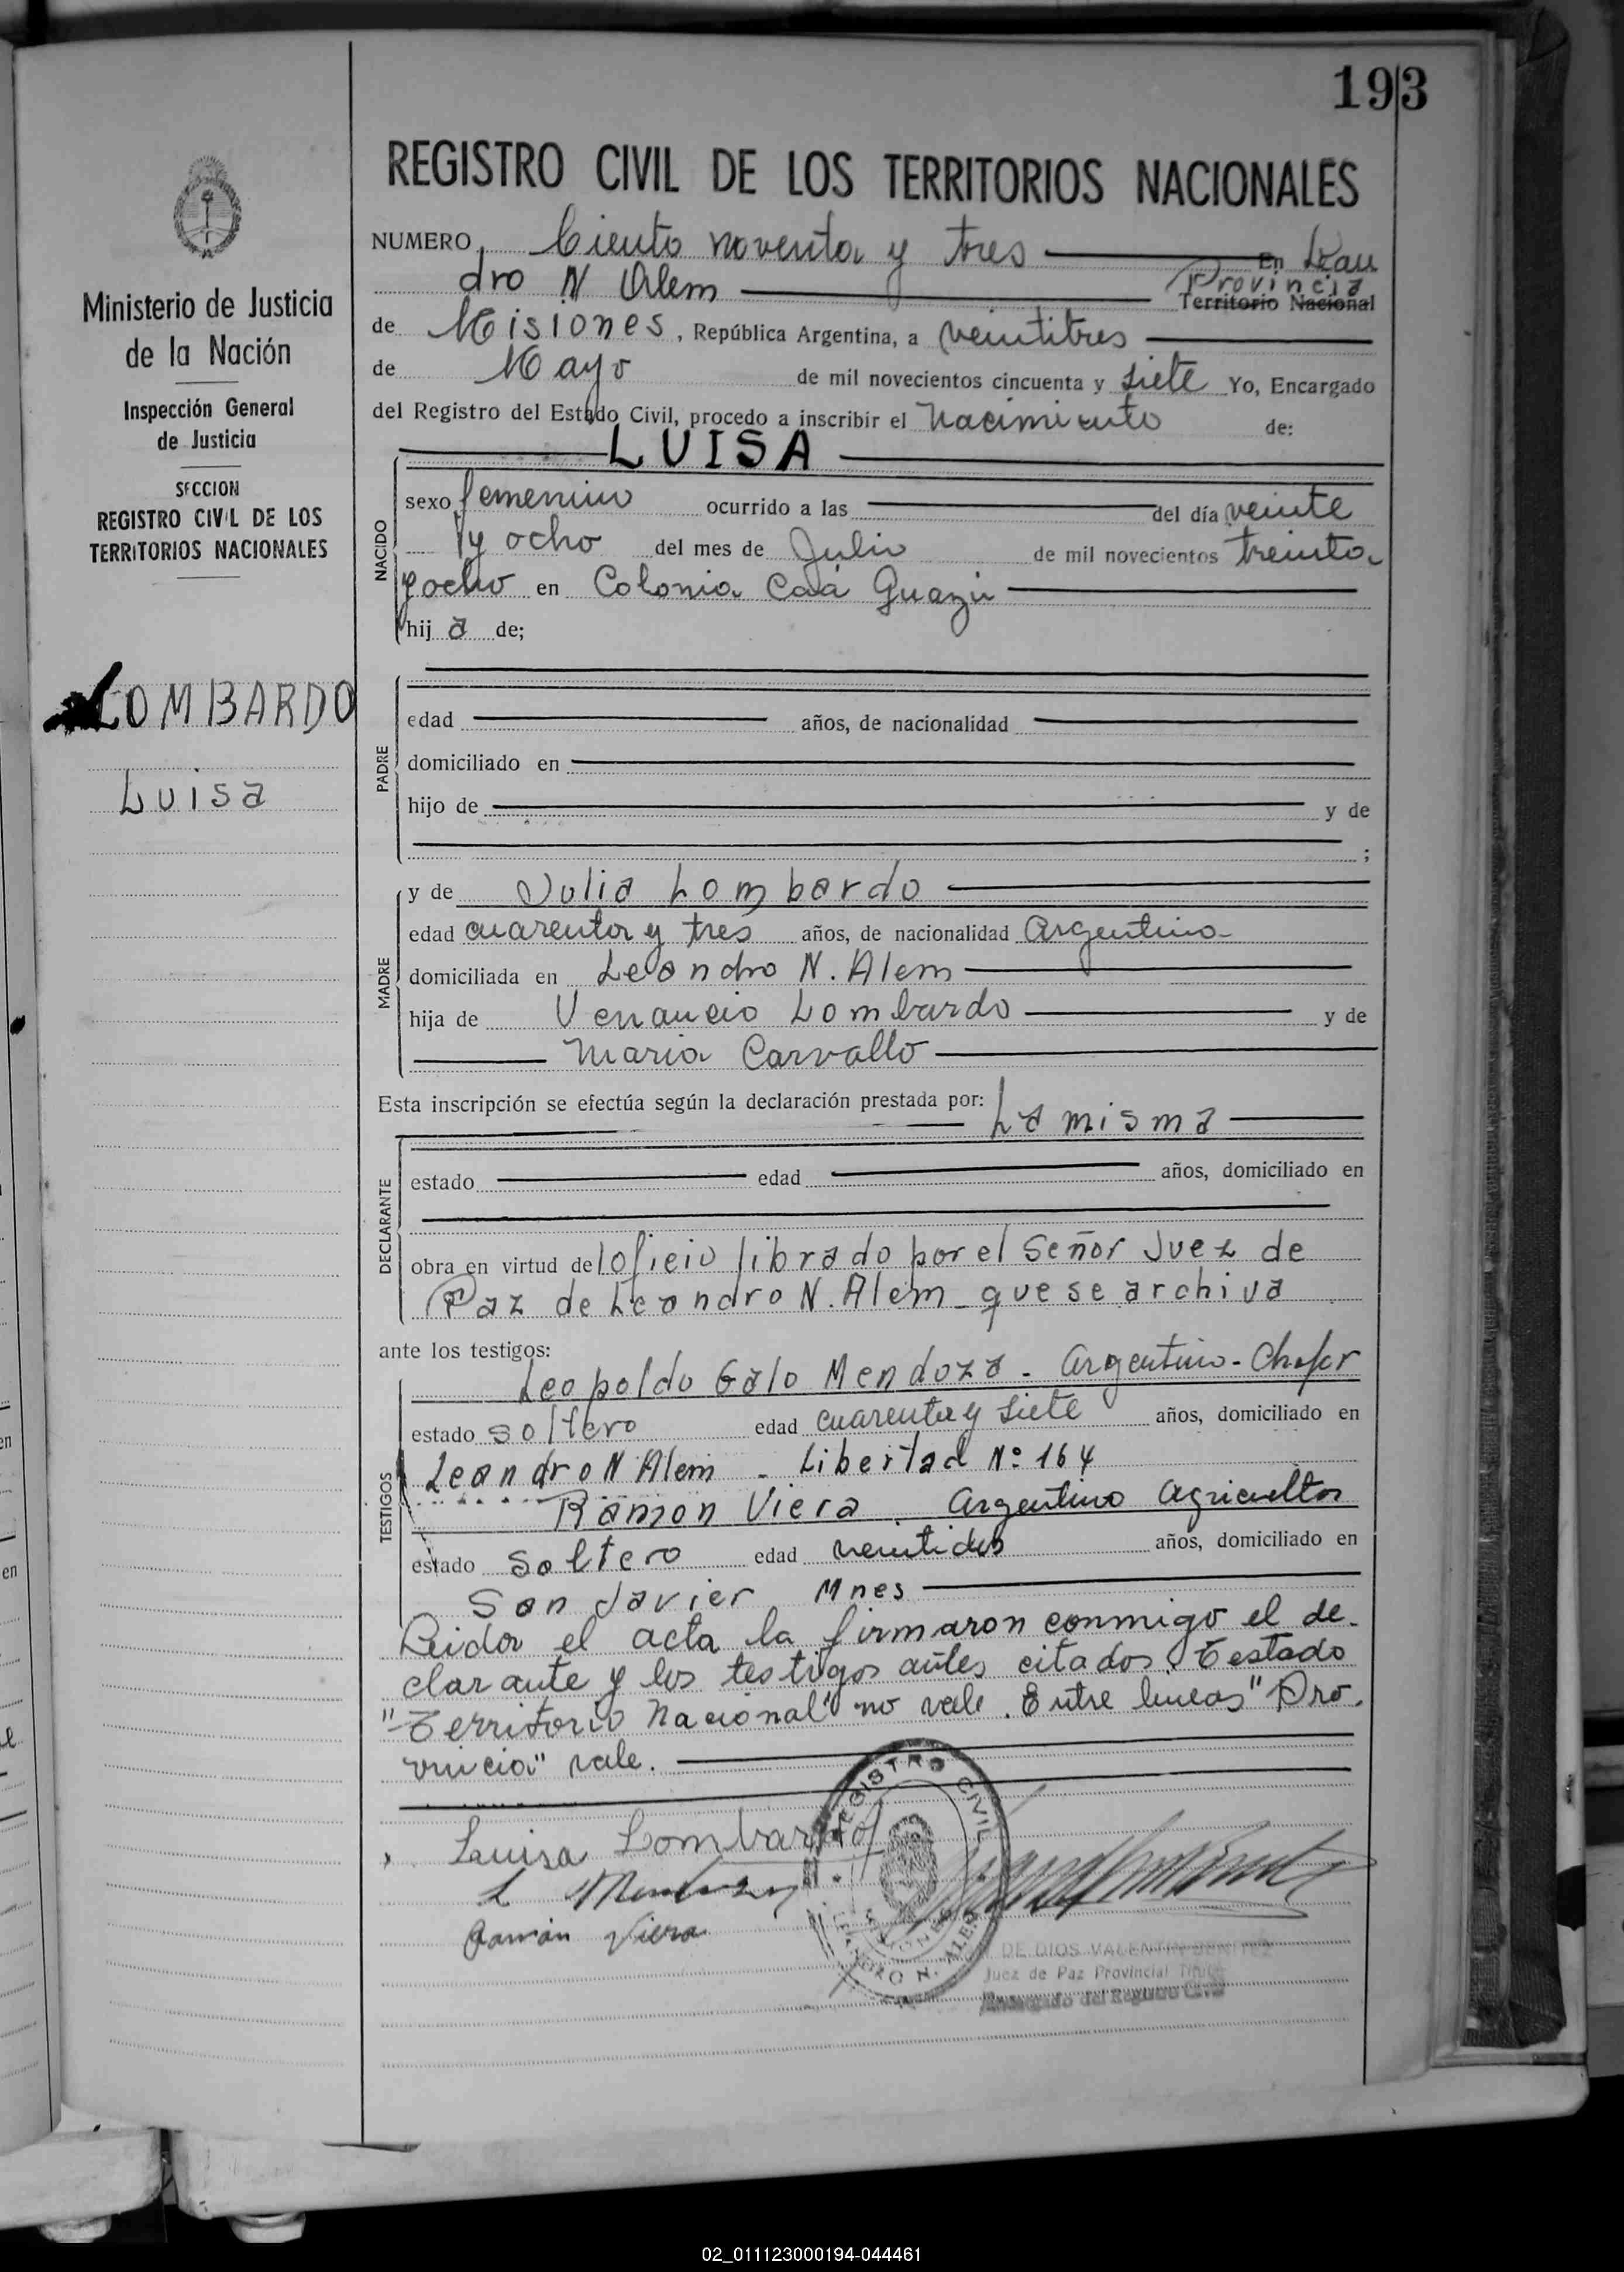 193
REGISTRO CIVIL DE LOS TERRITORIOS NACIONALES
NUMERO Ciento noventa y tres En Lean
dro N Alem Provincia
Territorio Nacional
de Misiones, República Argentina, a veintitres
de Mayo de mil novecientos cincuenta y siete Yo, Encargado
del Registro del Estado Civil, procedo a inscribir el Nacimiento de:
LUISA
NACIDO
sexo femenino ocurrido a las del día veinte
y ocho del mes de Julio de mil novecientos treinta
y ocho en Colonia Caá Guazú
hij a de;
PADRE
edad años, de nacionalidad
domiciliado en
hijo de y de
;
MADRE
y de Julia Lombardo
edad cuarenta y tres años, de nacionalidad Argentina
domiciliada en Leandro N. Alem
hija de Venancio Lombardo y de
Maria Carvallo
Esta inscripción se efectúa según la declaración prestada por: La misma
DECLARANTE
estado edad años, domiciliado en
obra en virtud del oficio librado por el Señor Juez de
Paz de Leandro N. Alem que se archiva
ante los testigos:
TESTIGOS
Leopoldo Galo Mendoza - Argentino - Chofer
estado soltero edad cuarenta y siete años, domiciliado en
Leandro N Alem - Libertad Nº 164
Ramon Viera . Argentino Agricultor
estado soltero edad veintidos años, domiciliado en
San Javier Mnes
Leida el acta la firmaron conmigo el de-
clarante y los testigos antes citados. Testado
"Territorio Nacional" no vale. Entre lineas "Pro-
vincia" vale.
Luisa Lombardo
L Mendoza
Ramón Viera
REGISTRO CIVIL
MISIONES
LEANDRO N. ALEM
DE DIOS VALENTIN BENITEZ
Juez de Paz Provincial Titular
Encargado del Registro Civil
Ministerio de Justicia
de la Nación
Inspección General
de Justicia
SECCION
REGISTRO CIVIL DE LOS
TERRITORIOS NACIONALES
LOMBARDO
Luisa
02_011123000194-044461